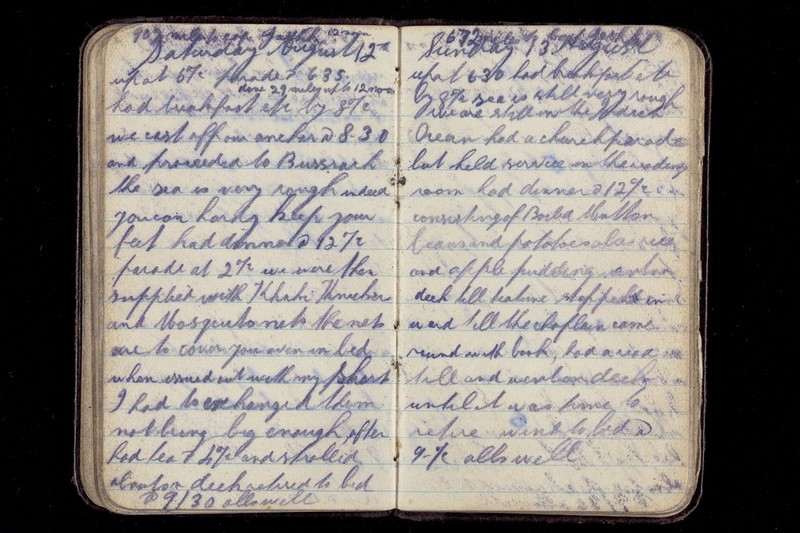 Saturday August 12th
up at 6/c parade 6 35
done 29 miles up to 12 noon
had breakfast etc by 8/c
we cast off our anchor @ 8-30
and proceeded to Bussrach
the sea is very rough indeed
you can hardy keep your
feet had dinner @ 12/c
parade at 2/c we were then
supplied with Khaki Knickers
and Mosquito nets the nets
are to cover you over in bed
when issued out with my short
I had to exchanged them
not being big enough after
had tea @ 4/c and strolled
about on deck retired to bed
@ 9/30 alls well
Sunday 13 August
up at 630 had breakfast etc
by 8/c sea is still very rough
we are still in the
Ocean had a church parade
but held service in the
room had dinner @ 12/c
consisting of Boild Mutton
beans and potatoes also rice
and apple pudding went on
deck till teatime stopped in
ward till the chaplain came
round with book, had a read
till and went on deck
until it was time to
retire went to bed @
9-/c alls well